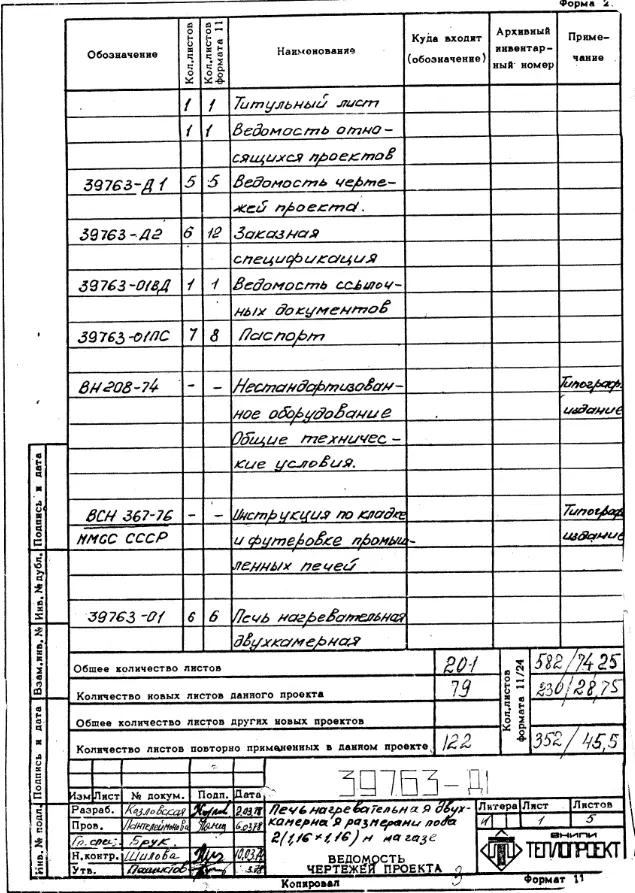 Форма 2.
Обозначение
Кол.листов
Кол.листов формата 11
Наименование
Куда входит (обозначение)
Архивный инвентар- ный номер
Приме- чание
1 1 Титульный лист
1 1 Ведомость отно-
сящихся проектов
39763-Д1 5 5 Ведомость черте-
жей проекта.
39763-Д2 6 12 Заказная
спецификация
39763-01ВД 1 1 Ведомость ссылоч-
ных документов
39763-01ПС 7 8 Паспорт
ВН208-74 - - Нестандартизован- Типограф.
ное оборудование издание
Общие техничес-
кие условия.
ВСН 367-76 - - Инструкция по кладке Типограф
ММСС СССР и футеровке промыш- издание
ленных печей
39763-01 6 6 Печь нагревательная
двухкамерная
Общее количество листов 201 582/74,25
Количество новых листов данного проекта 79 230/28,75
Кол.листов формата 11/24
Общее количество листов других новых проектов
Количество листов повторно примененных в данном проекте 122 352/45,5
Подпись и дата
Инв. № дубл.
Взам.инв. №
Подпись и дата
Инв. № подл.
39763-Д1
Изм Лист № докум. Подп. Дата
Разраб. Козловская
Пров. Пантелеймонова
Гр. спец. Брук
Н.контр. Шилова
Утв.
Печь нагревательная двух-
камерная размерами пода
2(1,16×1,16) м на газе
ВЕДОМОСТЬ
ЧЕРТЕЖЕЙ ПРОЕКТА
Литера Лист Листов
И 1 5
ВНИПИ
ТЕПЛОПРОЕКТ
Копировал
3
Формат 11